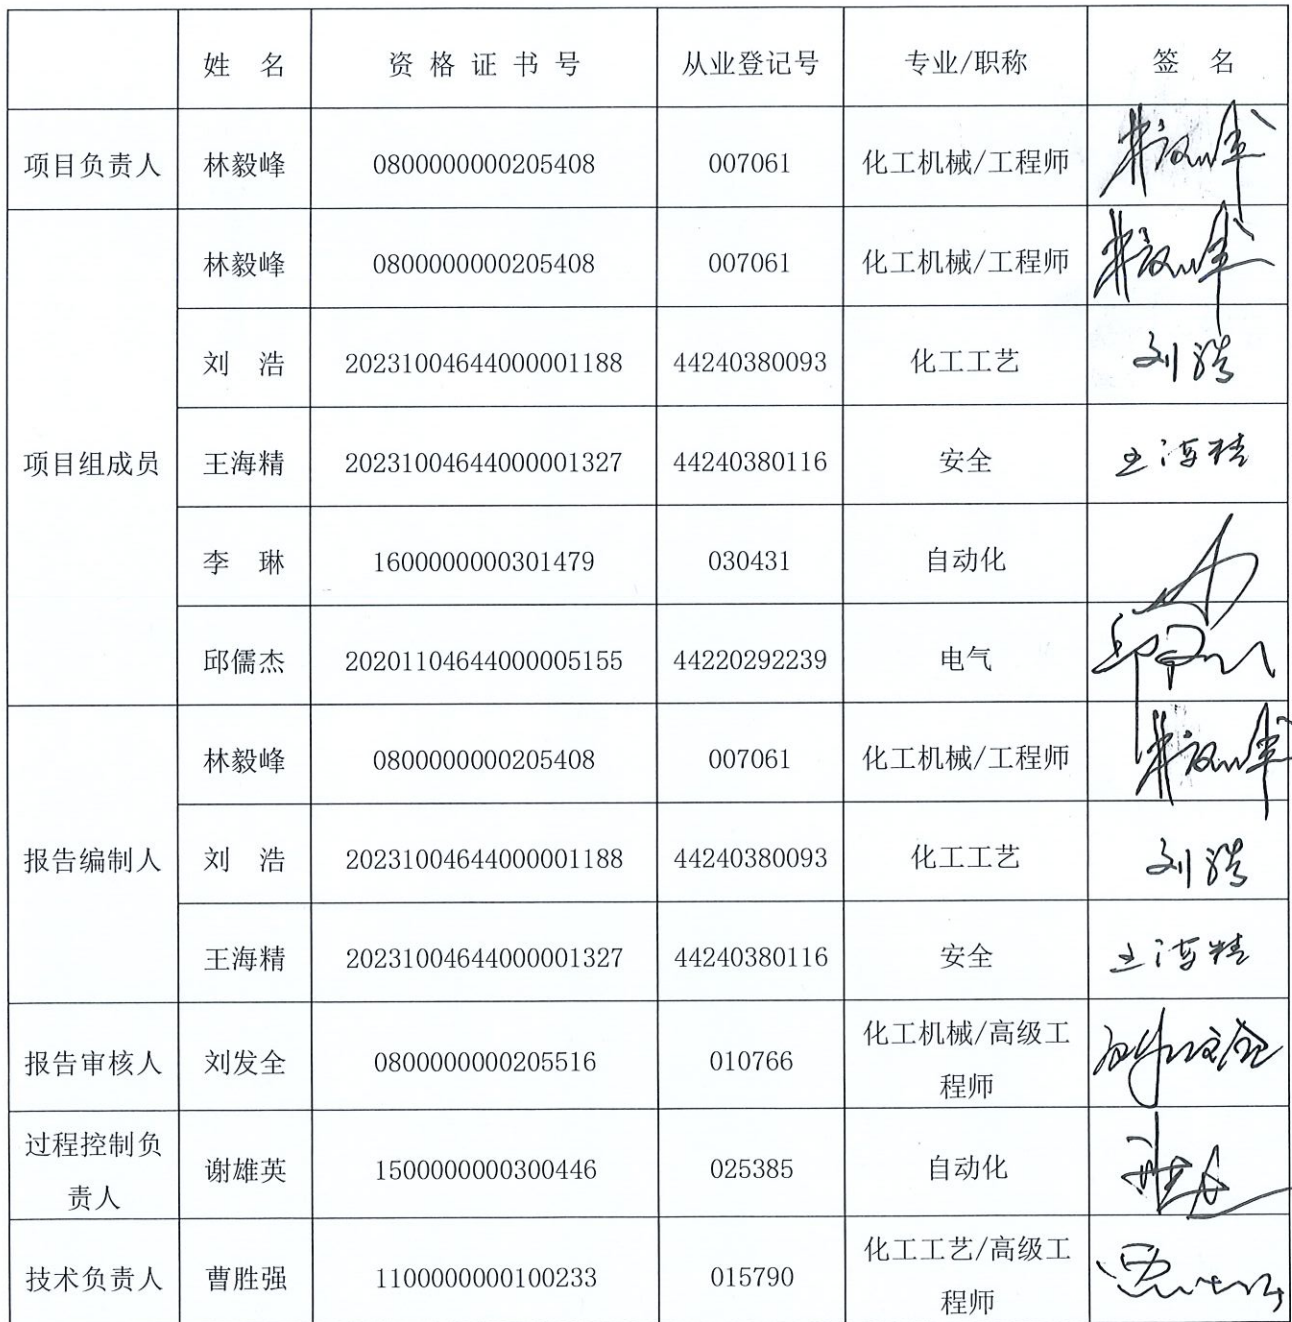 姓 名 资 格 证 书 号 从业登记号 专业/职称 签 名
项目负责人 林毅峰 0800000000205408 007061 化工机械/工程师 林毅峰
项目组成员
林毅峰 0800000000205408 007061 化工机械/工程师 林毅峰
刘 浩 20231004644000001188 44240380093 化工工艺 刘浩
王海精 20231004644000001327 44240380116 安全 王海精
李 琳 1600000000301479 030431 自动化
邱儒杰 20201104644000005155 44220292239 电气
报告编制人
林毅峰 0800000000205408 007061 化工机械/工程师 林毅峰
刘 浩 20231004644000001188 44240380093 化工工艺 刘浩
王海精 20231004644000001327 44240380116 安全 王海精
报告审核人 刘发全 0800000000205516 010766 化工机械/高级工
程师
过程控制负
责人 谢雄英 1500000000300446 025385 自动化
技术负责人 曹胜强 1100000000100233 015790 化工工艺/高级工
程师